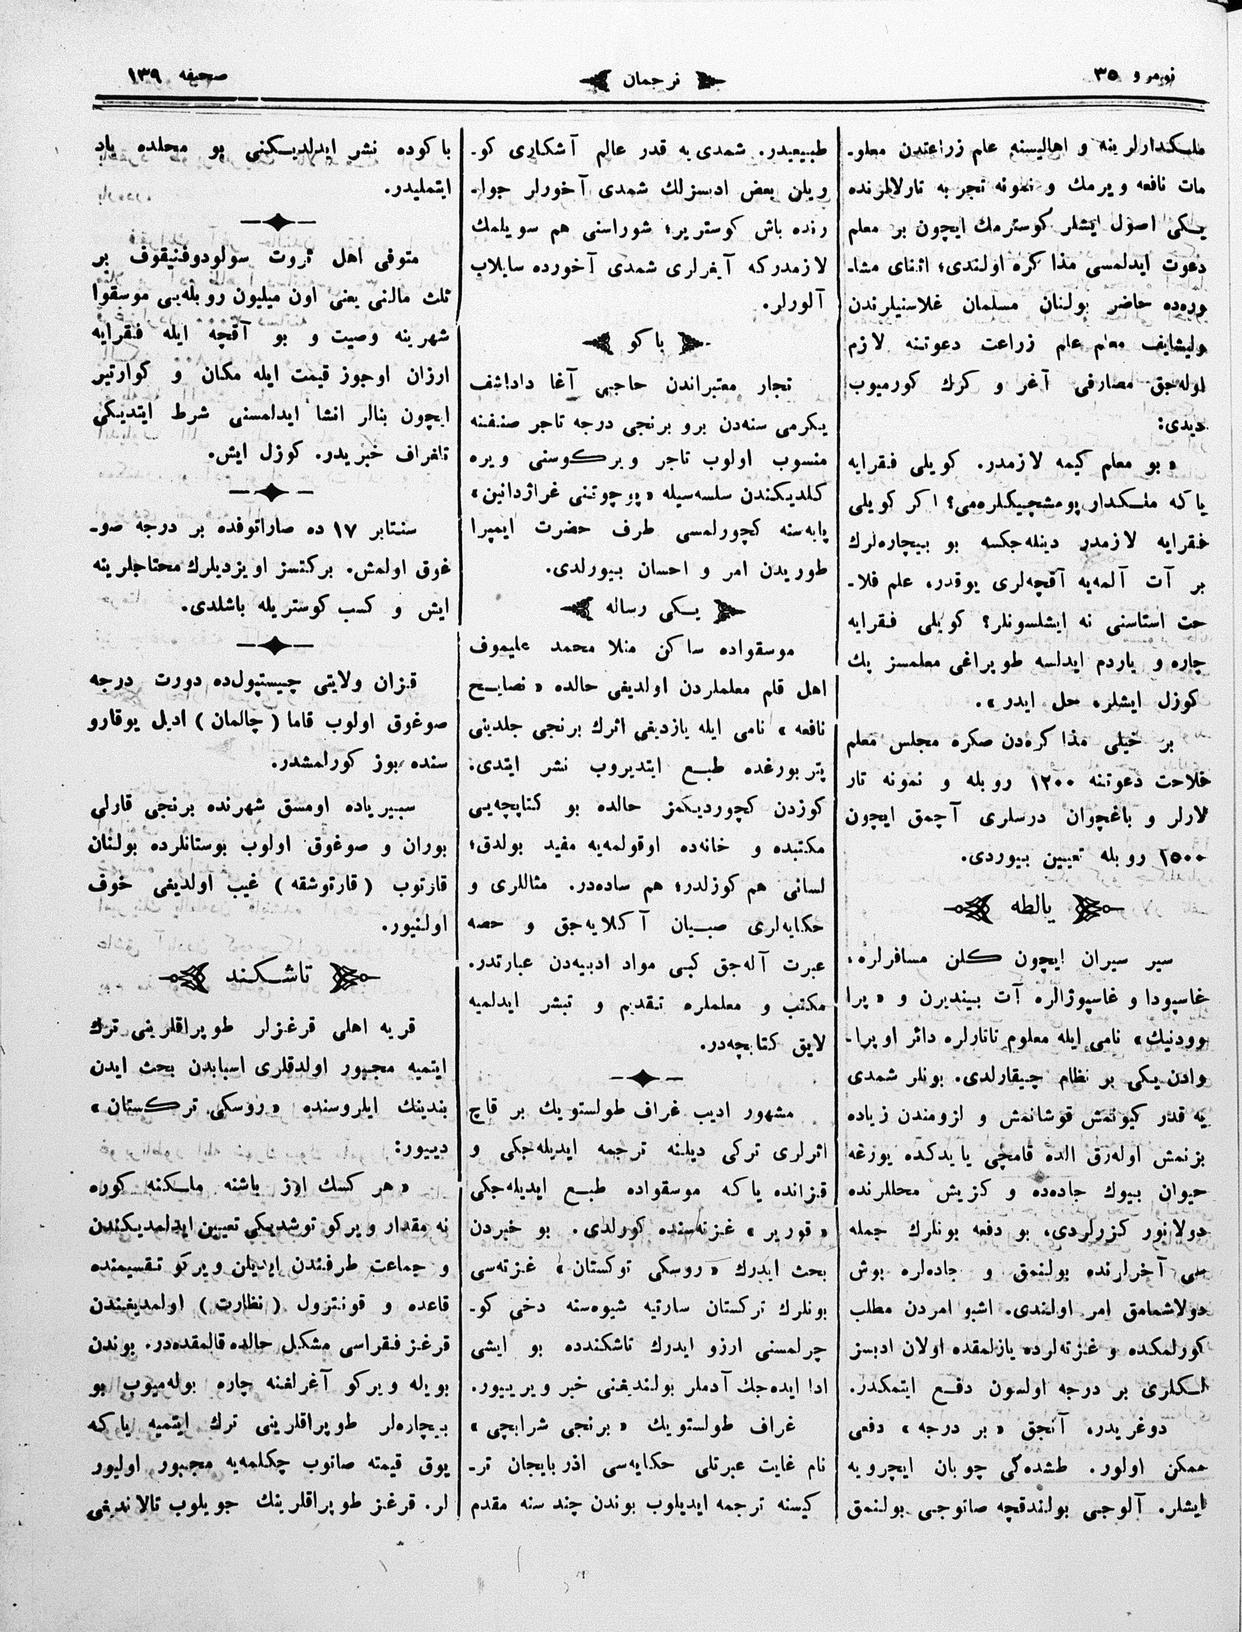 نومرو ٣٥
ترجمان
صحیفه ١٣٩
ملكدارلرینه و اهالیسنه علم زراعتدن معلو-
مات نافعه ویرمك و نمونه تجربه تارلالرنده
یكی اصول ایشلر كوسترمك ایچون بر معلم
دعوت ایدلمسی مذاكره اولندی؛ اثنای مشا-
وره‌ده حاضر بولنان مسلمان غلاسنیلرندن
ولیشایف معلم علم زراعت دعوتنه لازم
اوله‌جق مصارفی آغر و كرك كورمیوب
دیدی:
« بو معلم كیمه لازمدر. كویلی فقرایه
یا كه ملكدار پومشچیكلره‌می؟ اكر كویلی
فقرایه لازمدر دینله‌جكسه بو بیچاره‌لرك
بر آت آلمه‌یه آقچه‌لری یوقدر، علم فلا-
حت استاسنی نه ایشلسونلر؟ كویلی فقرایه
چاره و یاردم ایدلسه طوپراغی معلمسز پك
كوزل ایشلره حل ایدر ».
بر خیلی مذاكره‌دن صكره مجلس معلم
فلاحت دعوتنه ١٢٠٠ روبله و نمونه تار
لارلر و باغچوان درسلری آچمق ایچون
٢٥٠٠ روبله تعیین بیوردی.
یالطه
سیر سیران ایچون كلن مسافرلره،
غاسپودا و غاسپوژالره آت بیندیرن و « پرا
وودنیك» نامی ایله معلوم تاتارلره دائر اوپرا-
وادن یكی بر نظام چیقارلدی. بونلر شمدی
یه قدر كیونمش قوشانمش و لزومندن زیاده
بزنمش اوله‌رق الده قامچی یا یدكده یوزغه
حیوان بیوك جاده‌ده و كزیش محللرنده
دولانور كزرلردی، بو دفعه بونلرك جمله
سی آخرلرنده بولنمق و جاده‌لره بوش
دولاشمامق امر اولندی. اشبو امردن مطلب
كورلمكده و غزته‌لرده یازلمقده اولان ادبسز
لكلری بر درجه اولسون دفع ایتمكدر.
دوغریدر، آنجق « بر درجه » دفعی
ممكن اولور. طشده‌كی چوبان ایچرویه
ایشلر. آلوجی بولندقچه صاتوجی بولنمق
طبیعیدر. شمدی‌یه قدر عالم آشكاری كو-
ریلن بعض ادبسزلك شمدی آخورلر جوا-
رنده باش كوستریر؛ شوراسنی هم سویلمك
لازمدركه آیغرلری شمدی آخورده سایلاب
آلورلر.
باكو
تجار معتبراندن حاجی آغا داداشف
یكرمی سنه‌دن برو برنجی درجه تاجر صنفنه
منسوب اولوب تاجر ویركوسنی ویره
كلدیكندن سلسه‌سیله « پوچوتنی غراژدانین»
پایه‌سنه كچورلمسی طرف حضرت ایمپرا
طوریدن امر و احسان بیورلدی.
یكی رساله
موسقواده ساكن منلا محمد علیموف
اهل قلم معلملردن اولدیغی حالده « نصایح
نافعه » نامی ایله یازدیغی اثرك برنجی جلدینی
پتربورغده طبع ایتدیروب نشر ایتدی.
كوزدن كچوردیكمز حالده بو كتاپچه‌یی
مكتبده و خانه‌ده اوقولمه‌یه مفید بولدق؛
لسانی هم كوزلدر؛ هم ساده‌در. مثاللری و
حكایه‌لری صبیان آكلایه‌جق و حصه
عبرت آله‌جق كبی مواد ادبیه‌دن عبارتدر.
مكتب و معلملره تقدیم و تبشر ایدلمیه
لایق كتابچه‌در.
مشهور ادیب غراف طولستویك بر قاچ
اثرلری تركی دیلنه ترجمه ایدیله‌جكی و
قزانده یا كه موسقواده طبع ایدیله‌جكی
« قوریر » غزته‌سنده كورلدی. بو خبردن
بحث ایدرك «روسكی توكستان» غزته‌سی
بونلرك تركستان سارتیه شیوه‌سنه دخی كو-
چرلمسنی ارزو ایدرك تاشكندده بو ایشی
ادا ایده‌جك آدملر بولندیغنی خبر ویرییور.
غراف طولستویك « برنجی شرابچی »
نام غایت عبرتلی حكایه‌سی اذربایجان تر-
كیسنه ترجمه ایدیلوب بوندن چند سنه مقدم
باكوده نشر ایدلدیكنی بو محلده یاد
ایتملیدر.
متوفی اهل ثروت سولودوفنیقوف بر
ثلث مالنی یعنی اون میلیون روبله‌یی موسقوا
شهرینه وصیت و بو آقچه ایله فقرایه
ارزان اوجوز قیمت ایله مكان و كوارتیر
ایچون بنالر انشا ایدلمسنی شرط ایتدیكی
تلغراف خبریدر. كوزل ایش.
سنتابر ١٧ ده صاراتوفده بر درجه صو-
غوق اولمش. بركتسز اویزدیلرك محتاجلرینه
ایش و كسب كوستریله باشلدی.
قزان ولایتی چیستپول‌ده دورت درجه
صوغوق اولوب قاما (چالمان) ادیل یوقارو
سنده بوز كورلمشدر.
سیبریاده اومسق شهرنده برنجی قارلی
بوران و صوغوق اولوب بوستانلرده بولنان
قارتوب (قارتوشقه) غیب اولدیغی خوف
اولنیور.
تاشكند
قریه اهلی قرغزلر طوپراقلرینی ترك
ایتمیه مجبور اولدقلری اسبابدن بحث ایدن
بندینك ایلروسنده « روسكی تركستان»
دییور:
« هر كسك اوز باشنه ملكنه كوره
نه مقدار ویركو توشدیكی تعیین ایدلمدیكندن
و جماعت طرفندن ایدیلن ویركو تقسیمنده
قاعده و قونترول (نظارت) اولمدیغندن
قرغز فقراسی مشكل حالده قالمقده‌در. بوندن
بویله ویركو آغرلغنه چاره بوله‌میوب بو
بیچاره‌لر طوپراقلرینی ترك ایتمیه یا كه
یوق قیمته صاتوب چكلمه‌یه مجبور اولیور
لر. قرغز طوپراقلرینك جویلوب تالاندیغی